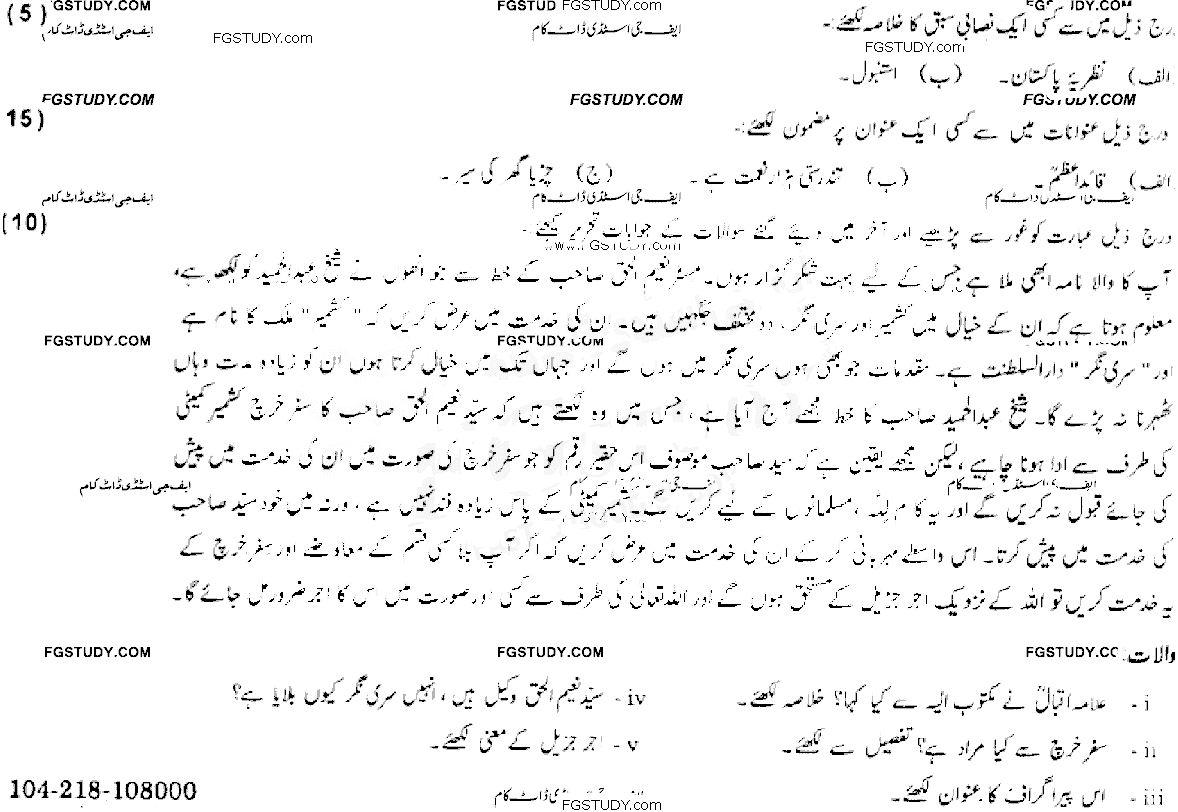 FGSTUDY.COM FGSTUD FGSTUDY.COM FGSTUDY.COM
(5) درج ذیل میں سے کسی ایک نصابی سبق کا خلاصہ لکھئے:۔
ایف جی اسٹڈی ڈاٹ کام ایف جی اسٹڈی ڈاٹ کام
FGSTUDY.COM FGSTUDY.COM
الف) نظریۂ پاکستان۔ (ب) استنبول۔
FGSTUDY.COM FGSTUDY.COM FGSTUDY.COM
15) درج ذیل عنوانات میں سے کسی ایک عنوان پر مضمون لکھئے:۔
الف) قائداعظمؒ۔ (ب) تندرستی ہزار نعمت ہے۔ (ج) چڑیا گھر کی سیر۔
ایف جی اسٹڈی ڈاٹ کام ایف جی اسٹڈی ڈاٹ کام ایف جی اسٹڈی ڈاٹ کام
(10) درج ذیل عبارت کو غور سے پڑھیے اور آخر میں دیئے گئے سوالات کے جوابات تحریر کیجئے۔
www.FGSTUDY.com
آپ کا والا نامہ ابھی ملا ہے جس کے لیے بہت شکر گزار ہوں۔ مسٹر نعیم الحق صاحب کے خط سے جو انھوں نے شیخ عبدالحمید کو لکھا ہے،
معلوم ہوتا ہے کہ ان کے خیال میں کشمیر اور سری نگر، دو مختلف جگہیں ہیں۔ ان کی خدمت میں عرض کریں کہ "کشمیر" ملک کا نام ہے
FGSTUDY.COM FGSTUDY.COM
اور "سری نگر" دارالسلطنت ہے۔ مقدمات جو بھی ہوں سری نگر میں ہوں گے اور جہاں تک میں خیال کرتا ہوں ان کو زیادہ مدت وہاں
ٹھہرنا نہ پڑے گا۔ شیخ عبدالحمید صاحب کا خط مجھے آج آیا ہے، جس میں وہ لکھتے ہیں کہ سیّد نعیم الحق صاحب کا سفر خرچ کشمیر کمیٹی
کی طرف سے ادا ہونا چاہیے، لیکن مجھے یقین ہے کہ سید صاحب موصوف اس حقیر رقم کو جو سفر خرچ کی صورت میں ان کی خدمت میں پیش
ایف جی اسٹڈی ڈاٹ کام
کی جائے قبول نہ کریں گے اور یہ کام للہ، مسلمانوں کے لیے کریں گے۔ کشمیر کمیٹی کے پاس زیادہ فنڈ نہیں ہے، ورنہ میں خود سیّد صاحب
کی خدمت میں پیش کرتا۔ اس واسطے مہربانی کر کے ان کی خدمت میں عرض کریں کہ اگر آپ بلا کسی قسم کے معاوضے اور سفر خرچ کے
یہ خدمت کریں تو اللہ کے نزدیک اجر جزیل کے مستحق ہوں گے اور اللہ تعالیٰ کی طرف سے کسی اور صورت میں اس کا اجر ضرور مل جائے گا۔
والات: FGSTUDY.COM FGSTUDY.COM FGSTUDY.CO
i - علامہ اقبالؒ نے مکتوب الیہ سے کیا کہا؟ خلاصہ لکھئے۔ iv - سیّد نعیم الحق وکیل ہیں، انہیں سری نگر کیوں بلایا ہے؟
ii - سفر خرچ سے کیا مراد ہے؟ تفصیل سے لکھئے۔ v - اجر جزیل کے معنی لکھئے۔
iii - اس پیراگراف کا عنوان لکھئے۔
104-218-108000
FGSTUDY.COM